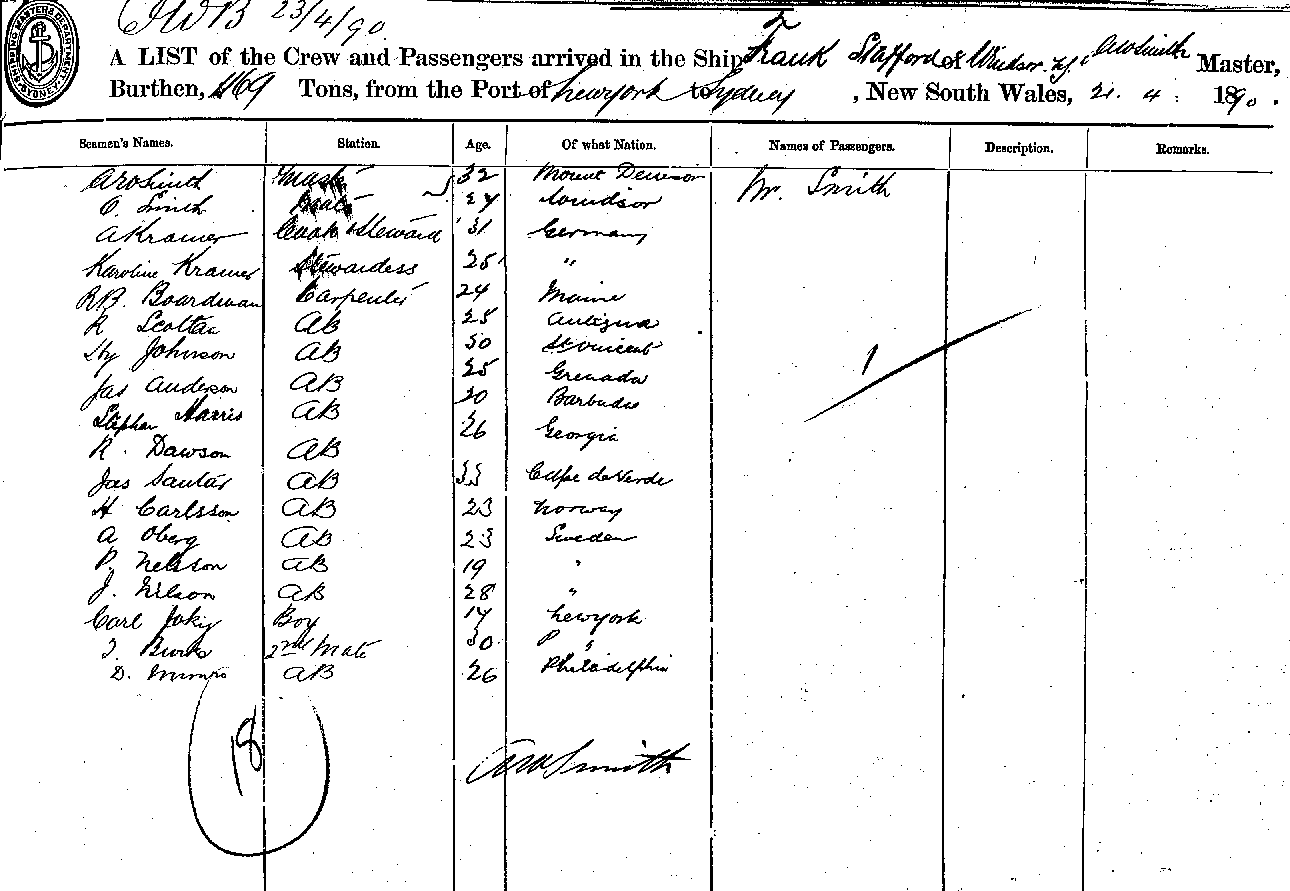 SHIPPING MASTERS DEPARTMENT SYDNEY
23/4/90
A LIST of the Crew and Passengers arrived in the Ship Frank Stafford of Windsor N.S. Smith Master,
Burthen, 1169 Tons, from the Port of Newyork to Sydney, New South Wales, 21. 4. 1890.
Seamen's Names. Station. Age. Of what Nation. Names of Passengers. Description. Remarks.
Smith Master 32 Mount Denson Mr. Smith
C. Smith Mate 24 Windsor
A Kramer Cook & Steward 31 Germany
Karoline Kramer Stewardess 25 "
R.B. Boardman Carpenter 24 Maine
R AB 25 Antigua
Hy Johnson AB 50 St Vincent
Jas Anderson AB 25 Grenada
Stephen Harris AB 20 Barbados
R. Dawson AB 26 Georgia
Jas Santas AB 35 Cape de Verde
H Carlsson AB 23 Norway
A Oberg AB 23 Sweden
P. Nelson AB 19 "
J. Nilson AB 28 "
Carl Boy 17 Newyork
2nd Mate 30 "
D. Munro AB 26 Philadelphia
1
18
Smith